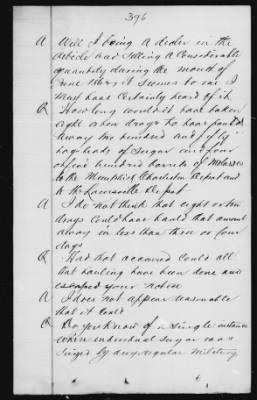 396
A Well I being a dealer in the
article and taking a considerable
quantity during the month of
June 1862 it seems to me I
must have certainly heard of it
Q How long would it have taken
eight or ten drays to have
away two hundred and fifty
hogsheads of sugar and four
or five hundred barrels of Molasses
to the Memphis & Charleston Depot and
to the Louisville Depot
A I do not think that eight or ten
drays could have hauled that amount
away in less than three or four
days
Q Had that occurred could all
that hauling have been done and
escaped your notice
A I does not appear reasonable
that it could
Q Do you know of a single instance
when individual sugar was
seized by any regular military